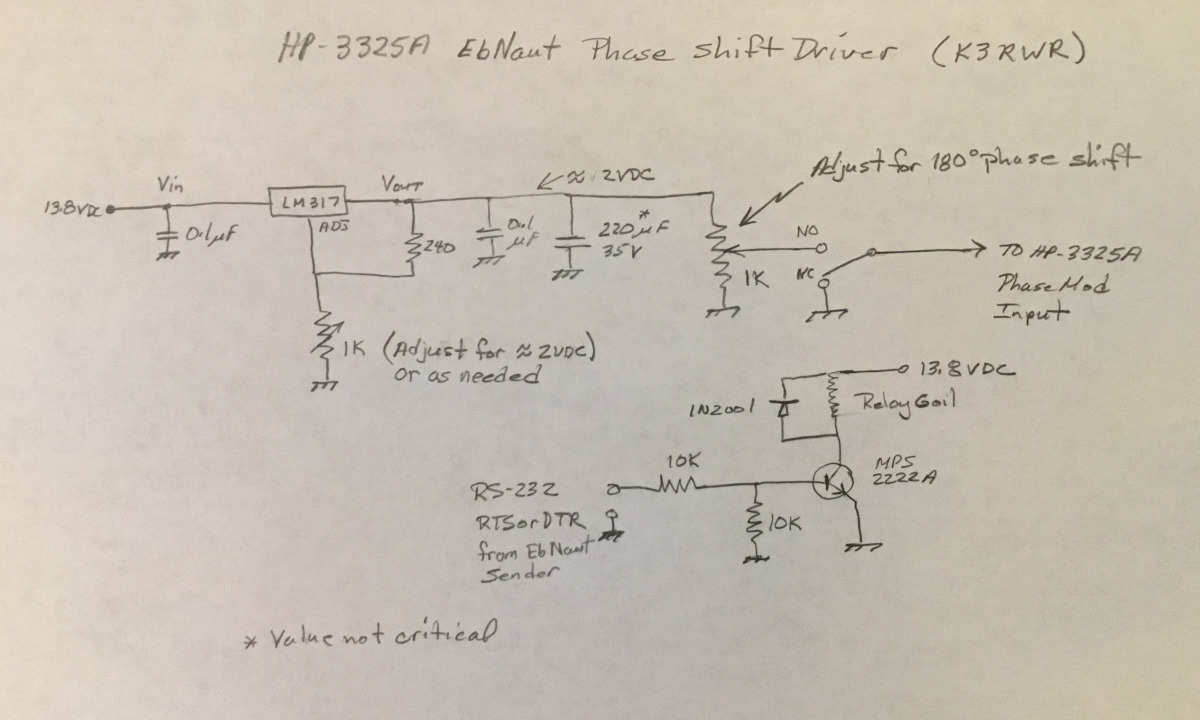 HP-3325A EbNaut Phase Shift Driver (K3RWR)
Adjust for 180° phase shift
≈ 2VDC
Vin
Vout
13.8VDC
LM317
ADJ
0.1µF
240
0.1
µF
220µF *
35V
1K
NO
NC
TO HP-3325A
Phase Mod
Input
1K (Adjust for ≈ 2VDC)
or as needed
13.8VDC
1N2001
Relay Coil
10K
MPS
2222A
RS-232
RTS or DTR
from EbNaut
Sender
10K
* Value not critical